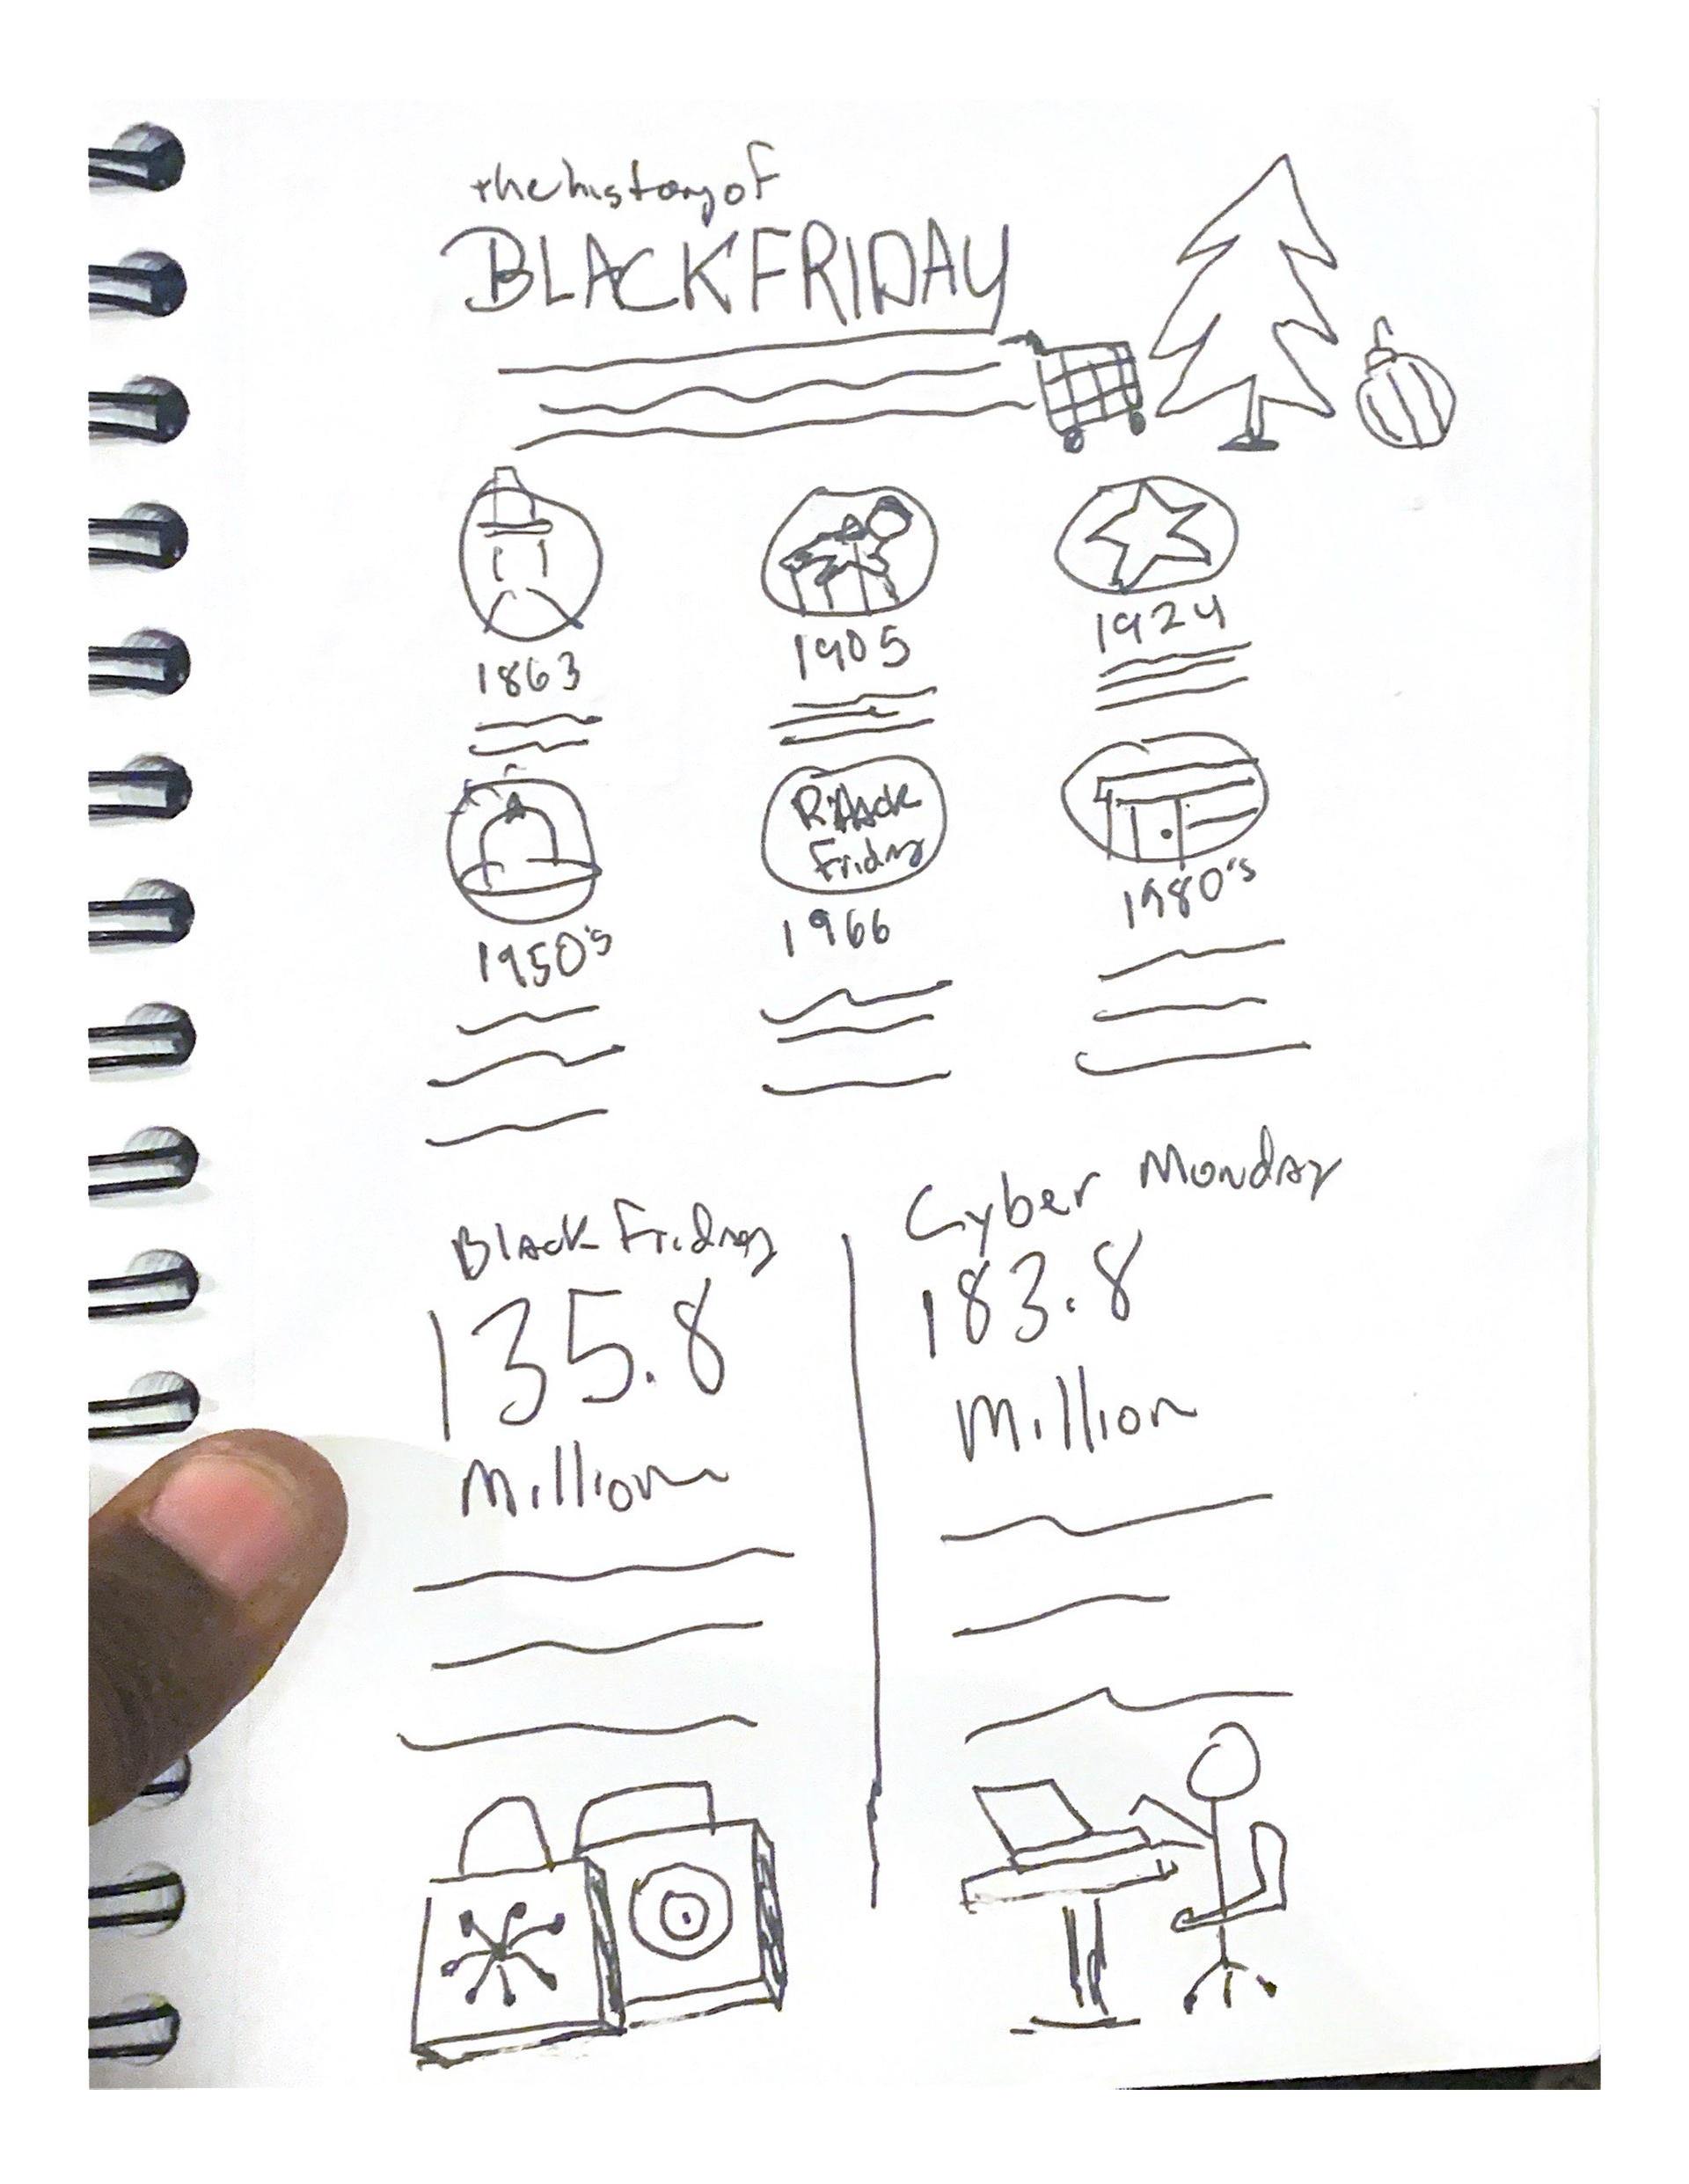 the history of
BLACK FRIDAY
1863
1905
1924
Friday
1950's
1966
1980's
Black Friday
135.8
Million
Cyber Monday
183.8
Million